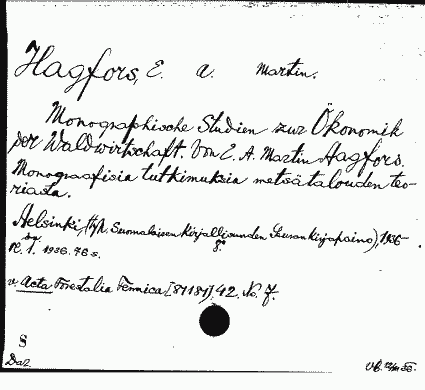 Hagfors, E. a. Martin.
Monographische Studien zur Ökonomik
der Waldwirtschaft. Von E. A. Martin Hagfors.
Monografisia tutkimuksia metsätalouden teo-
riasta.
Helsinki, (Hki. Suomalaisen Kirjallisuuden Seuran kirjapaino), 1936- .
8°
1. 1936. 76 s.
v. Acta Forestalia Fennica [87181], 42. No. 7.
S
Da2.